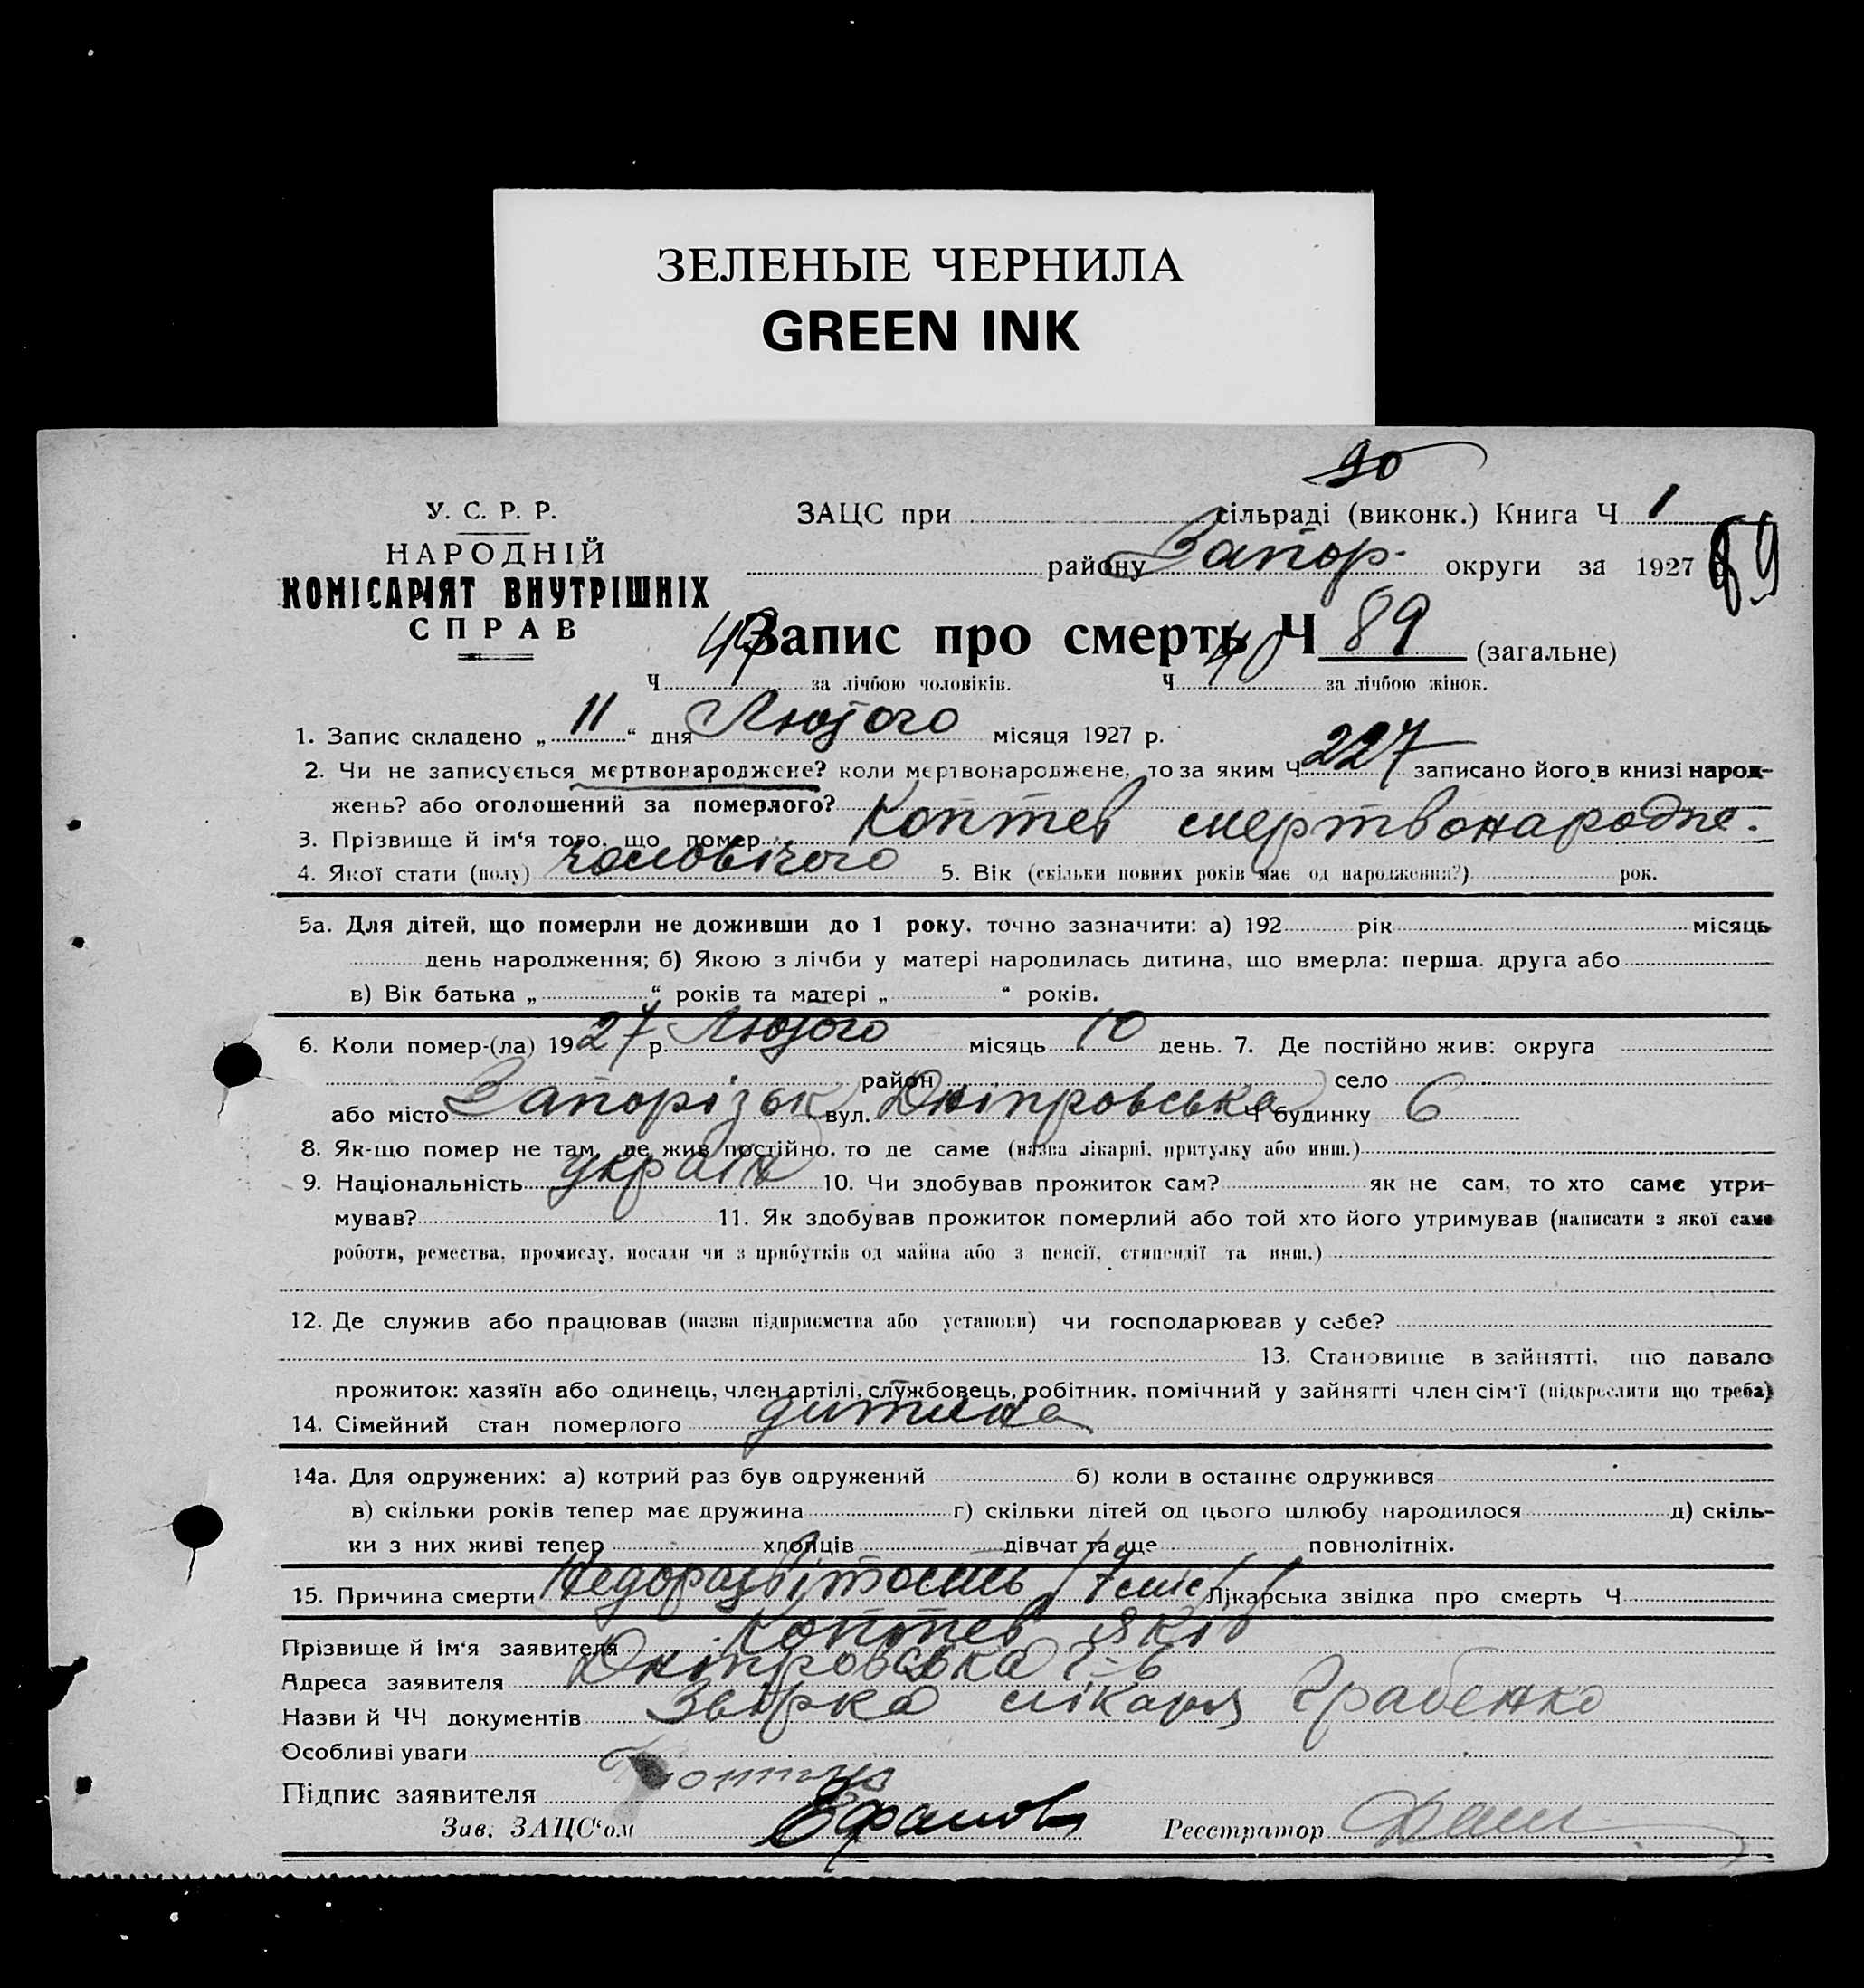 ЗЕЛЕНЫЕ ЧЕРНИЛА
GREEN INK
90
У. С. Р. Р.
НАРОДНІЙ
КОМІСАРІЯТ ВНУТРІШНІХ
СПРАВ
ЗАЦС при сільраді (виконк.) Книга Ч 1
району Запор. округи за 1927 89
Запис про смерть Ч 89 (загальне)
Ч 49 за лічбою чоловіків. Ч 40 за лічбою жінок.
1. Запис складено „ 11 “ дня Лютого місяця 1927 р.
2. Чи не записується мертвонароджене? коли мертвонароджене, то за яким Ч 227 записано його в книзі народ-
жень? або оголошений за померлого?
3. Прізвище й ім‘я того, що помер Коптев мертвонародне.
4. Якої стати (полу) чоловічого 5. Вік (скільки повних років має од народження?) рок.
5а. Для дітей, що померли не доживши до 1 року, точно зазначити: а) 192 рік місяць
день народження; б) Якою з лічби у матері народилась дитина, що вмерла: перша, друга або
в) Вік батька „ “ років та матері „ “ років.
6. Коли помер-(ла) 1927 р. Лютого місяць 10 день. 7. Де постійно жив: округа
район село
або місто Запоріжжя вул. Дніпровська Ч будинку 6
8. Як-що помер не там, де жив постійно, то де саме (назва лікарні, притулку або инш.)
9. Національність україн 10. Чи здобував прожиток сам? як не сам, то хто саме утри-
мував? 11. Як здобував прожиток померлий або той хто його утримував (написати з якої саме
роботи, ремества, промислу, посади чи з прибутків од майна або з пенсії, стипендії та инш.)
12. Де служив або працював (назва підприємства або установи) чи господарював у себе?
13. Становище в зайнятті, що давало
прожиток: хазяїн або одинець, член артілі, службовець, робітник, помічний у зайнятті член сім‘ї (підкреслити що треба)
14. Сімейний стан померлого дитина
14а. Для одружених: а) котрий раз був одружений б) коли в останнє одружився
в) скільки років тепер має дружина г) скільки дітей од цього шлюбу народилося д) скіль-
ки з них живі тепер хлопців дівчат та ще повнолітніх.
15. Причина смерти Недоразвітость Лікарська звідка про смерть Ч
Прізвище й Ім‘я заявителя Коптев Яків
Адреса заявителя Дніпровська ч-6
Назви й ЧЧ документів Звірка лікаря Грабенко
Особливі уваги
Підпис заявителя
Зав. ЗАЦС‘ом
Реєстратор